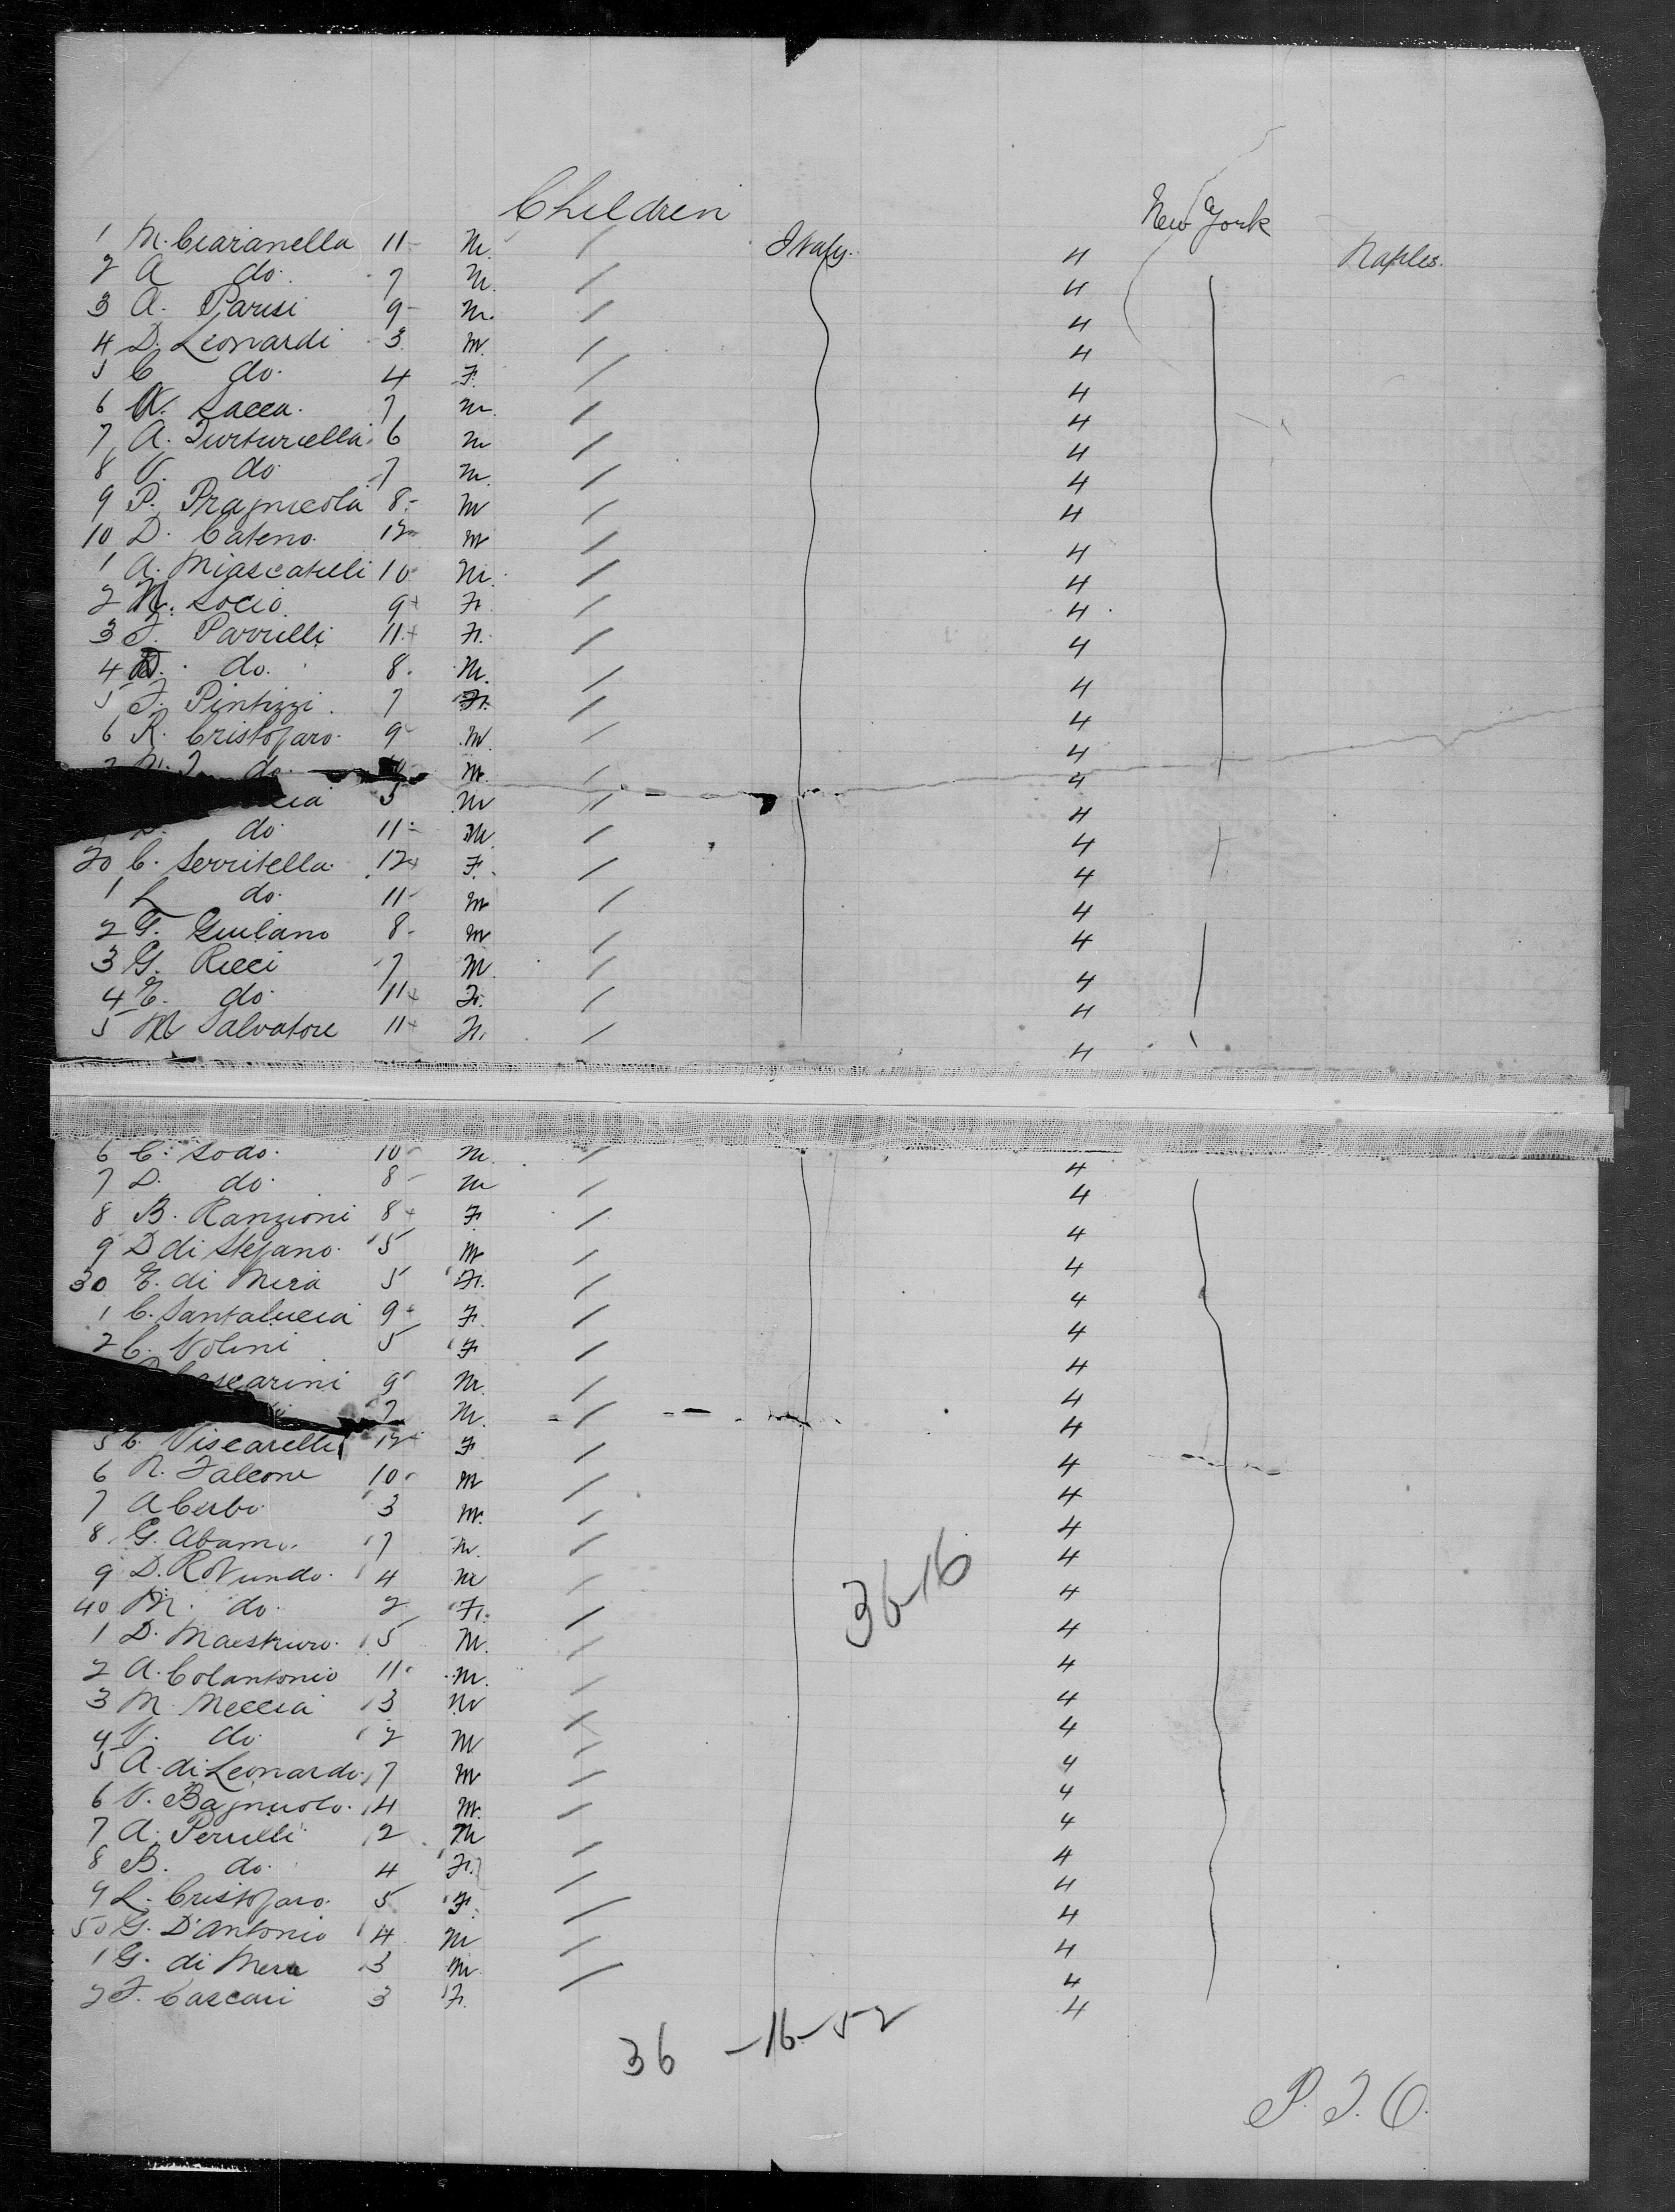 Children
New York
1 M. Ciaranella 11 - M. / Italy. 4 Naples.
2 A do. 7 M. / 4
3 A. Parisi 9 - M. / 4
4 D. Leonardi 3 M. / 4
5 C do. 4 F. / 4
6 Sacca. 7 M. / 4
7 A. Turturiella 6 M / 4
8 V. do 7 M. / 4
9 P. Pragnicola 8 - M / 4
10 D. Cateno. 12 - M / 4
1 A. Miascatelli 10 M. / 4
2 N. Socio 9 + F. / 4
3 F. Parrilli 11 + F. / 4
4 D. do. 8 - M. / 4
5 F. Pintizzi 7 F. / 4
6 R. Cristofaro. 9 - M. / 4
do. M. / 4
5 M / 4
do 11 - M. / 4
20 C. Serritella. 12 + F. / 4
1 L do. 11 - M / 4
2 G. Guilano 8 - M / 4
3 G. Ricci 7 M. / 4
4 E. do. 11 + F. / 4
5 M Salvatore 11 + F. / 4
6 C. Sodo. 10 - M. / 4
7 D. do. 8 - M / 4
8 B. Ranzioni 8 + F. / 4
9 D di Stefano. 5 M / 4
30 E. di Mera 5 F. / 4
1 C. Santalucia 9 + F. / 4
2 C. Volini 5 F / 4
Cascarini 9 - M. / 4
7 M. / 4
5 C. Viscarelli 12 + F / 4
6 N. Falcone 10 - M / 4
7 A Cerbo 3 M. / 4
8 G. Abamo. 7 M. / 4
9 D. Rotundo. 4 M / 4
40 M. do. 2 F. / 4
1 D. 5 M. / 4
2 A. Colantonio 11 - M. / 4
3 M. Meccia 3 M / 4
4 V. do. 2 M / 4
5 A. di Leonardo. 7 M / 4
6 V. Bagnuolo. 4 M. / 4
7 A. Perulli 2 M / 4
8 B. do. 4 F. / 4
9 L. Cristofaro. 5 F. / 4
50 G. D'Antonio 4 M / 4
1 G. di Mera 3 M. / 4
2 F. Cascari 3 F. 4
36-16
36 - 16 - 52
P. T. O.